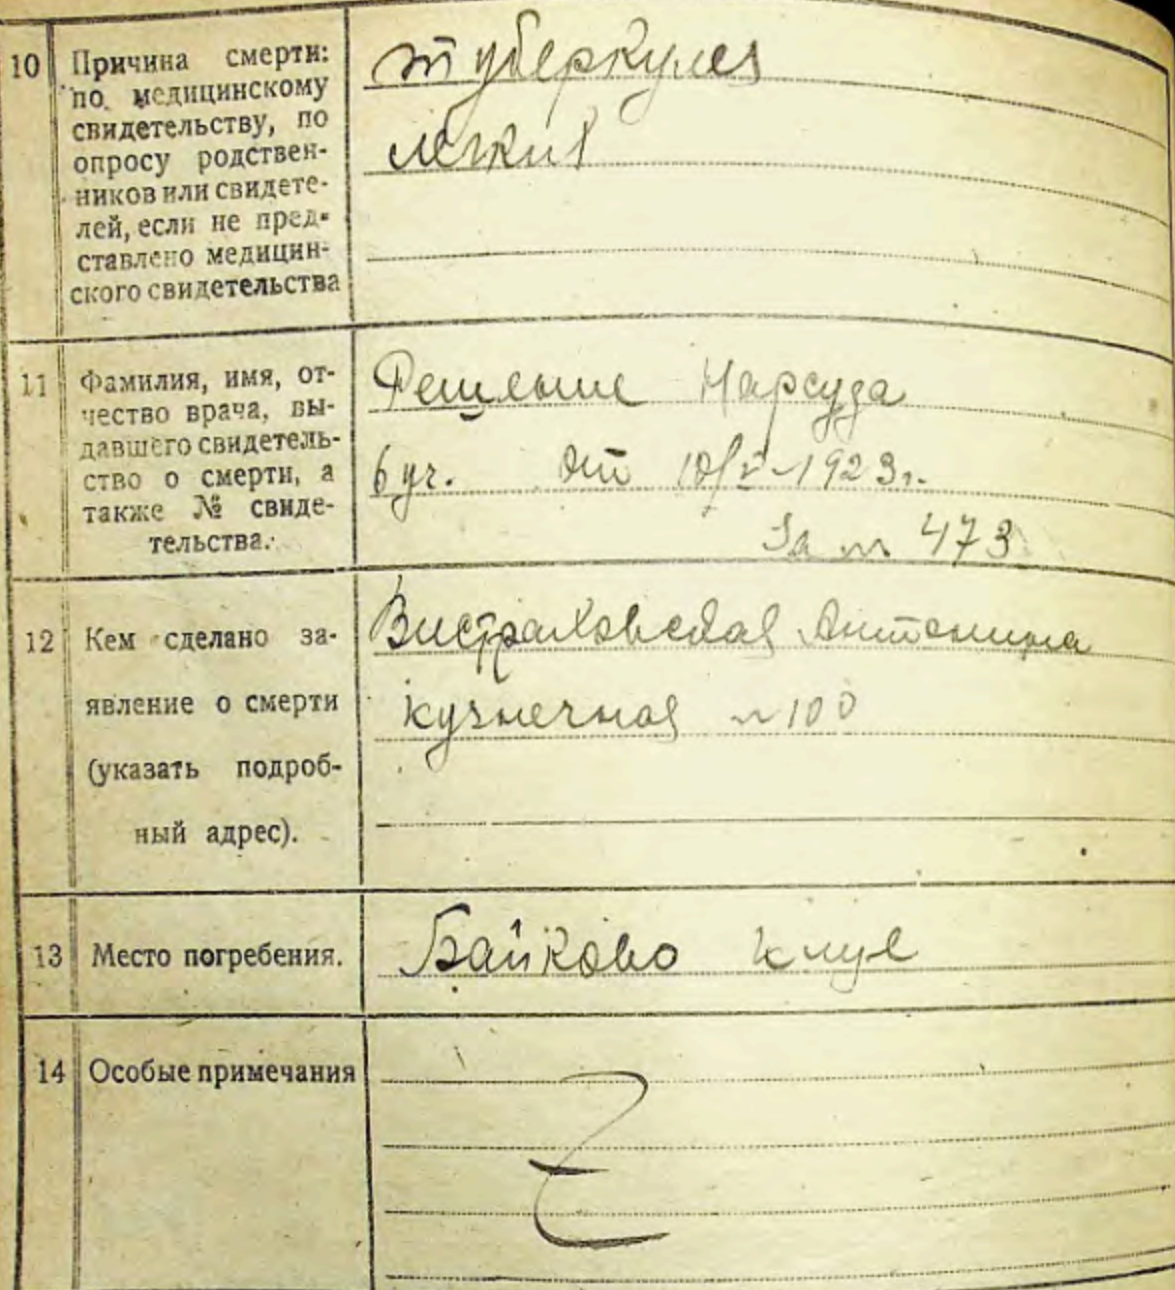 10 Причина смерти:
по медицинскому
свидетельству, по
опросу родствен-
ников или свидете-
лей, если не пред-
ставлено медицин-
ского свидетельства
туберкулез
легких
11 Фамилия, имя, от-
чество врача, вы-
давшего свидетель-
ство о смерти, а
также № свиде-
тельства.
Решение Нарсуда
6 уч. от 10/V-1923г.
За № 473
12 Кем сделано за-
явление о смерти
(указать подроб-
ный адрес).
Антонина
Кузнечная №100
13 Место погребения.
Байково
14 Особые примечания